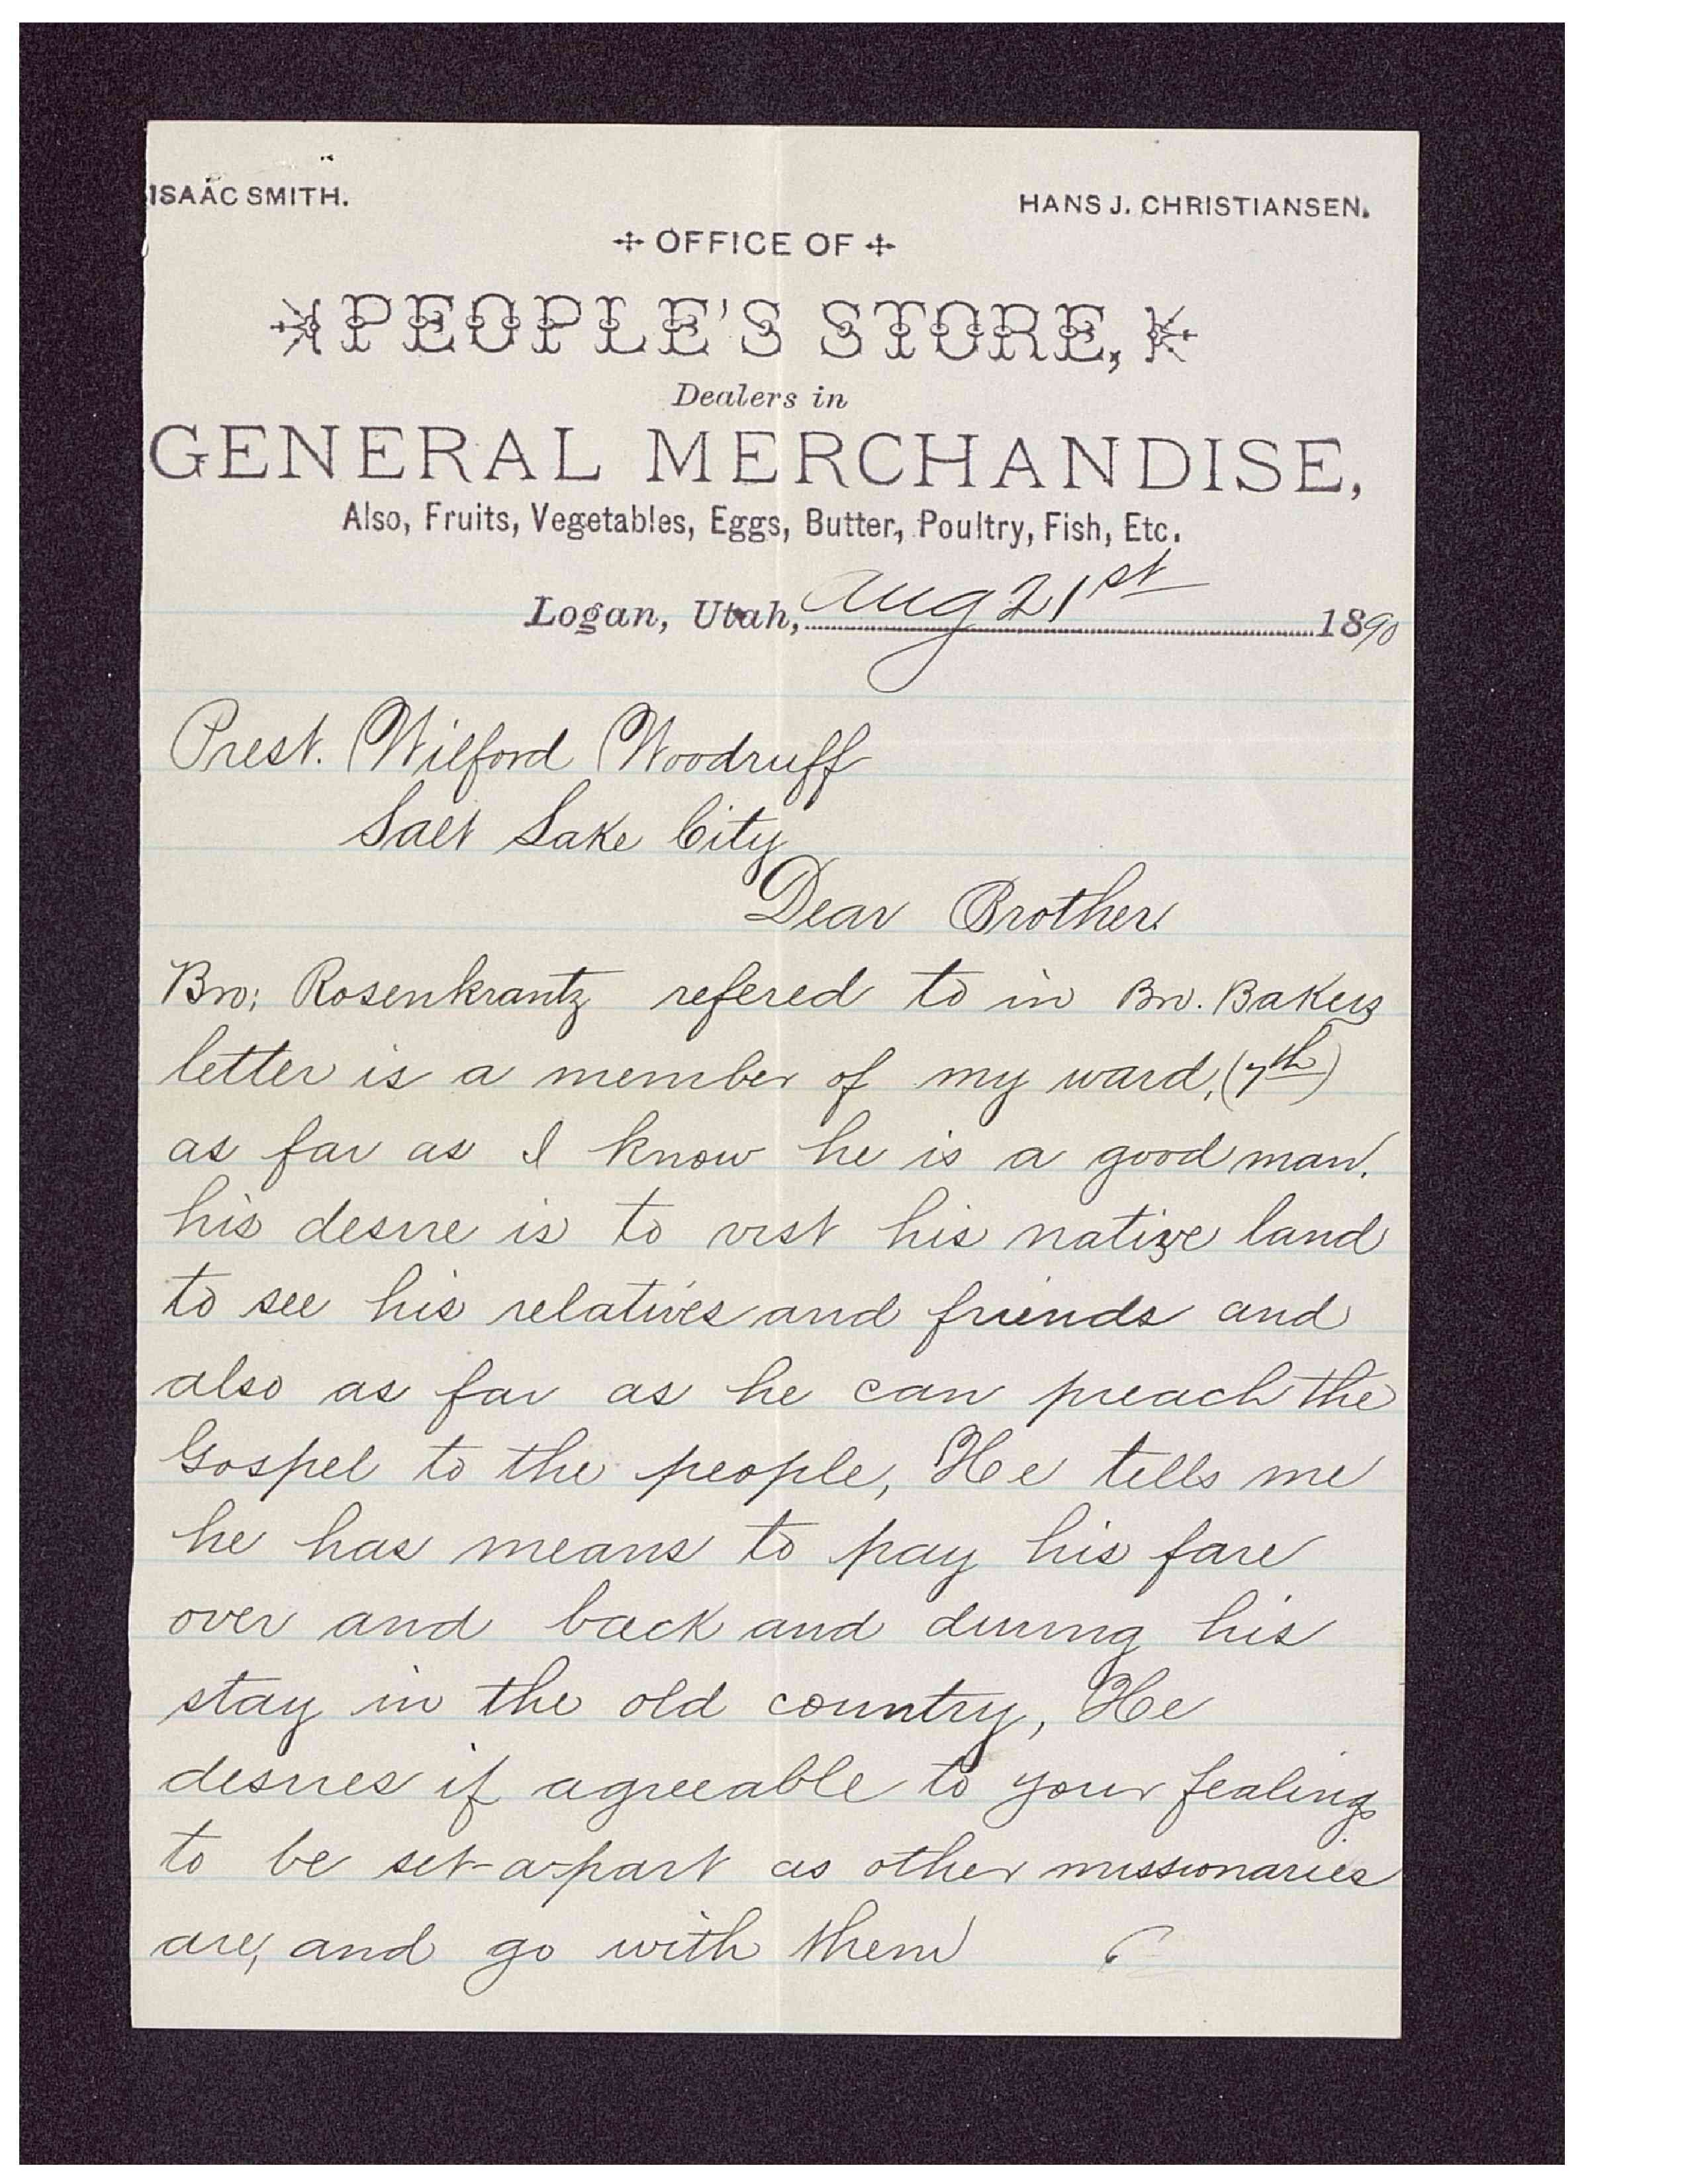 ISAAC SMITH.
HANS J. CHRISTIANSEN.
OFFICE OF
PEOPLE'S STORE,
Dealers in
GENERAL MERCHANDISE,
Also, Fruits, Vegetables, Eggs, Butter, Poultry, Fish, Etc.
Logan, Utah, Aug 21st 1890
Prest. Wilford Woodruff
Salt Lake City
Dear Brother.
Bro; Rosenkrantz refered to in Bro. Bakers
letter is a member of my ward, (7th)
as far as I know he is a good man.
his desire is to vist his native land
to see his relatives and friends and
also as far as he can preach the
Gospel to the people, He tells me
he has means to pay his fare
over and back and during his
stay in the old country, He
desires if agreeable to your fealings
to be set-a-part as other missionaries
are, and go with them